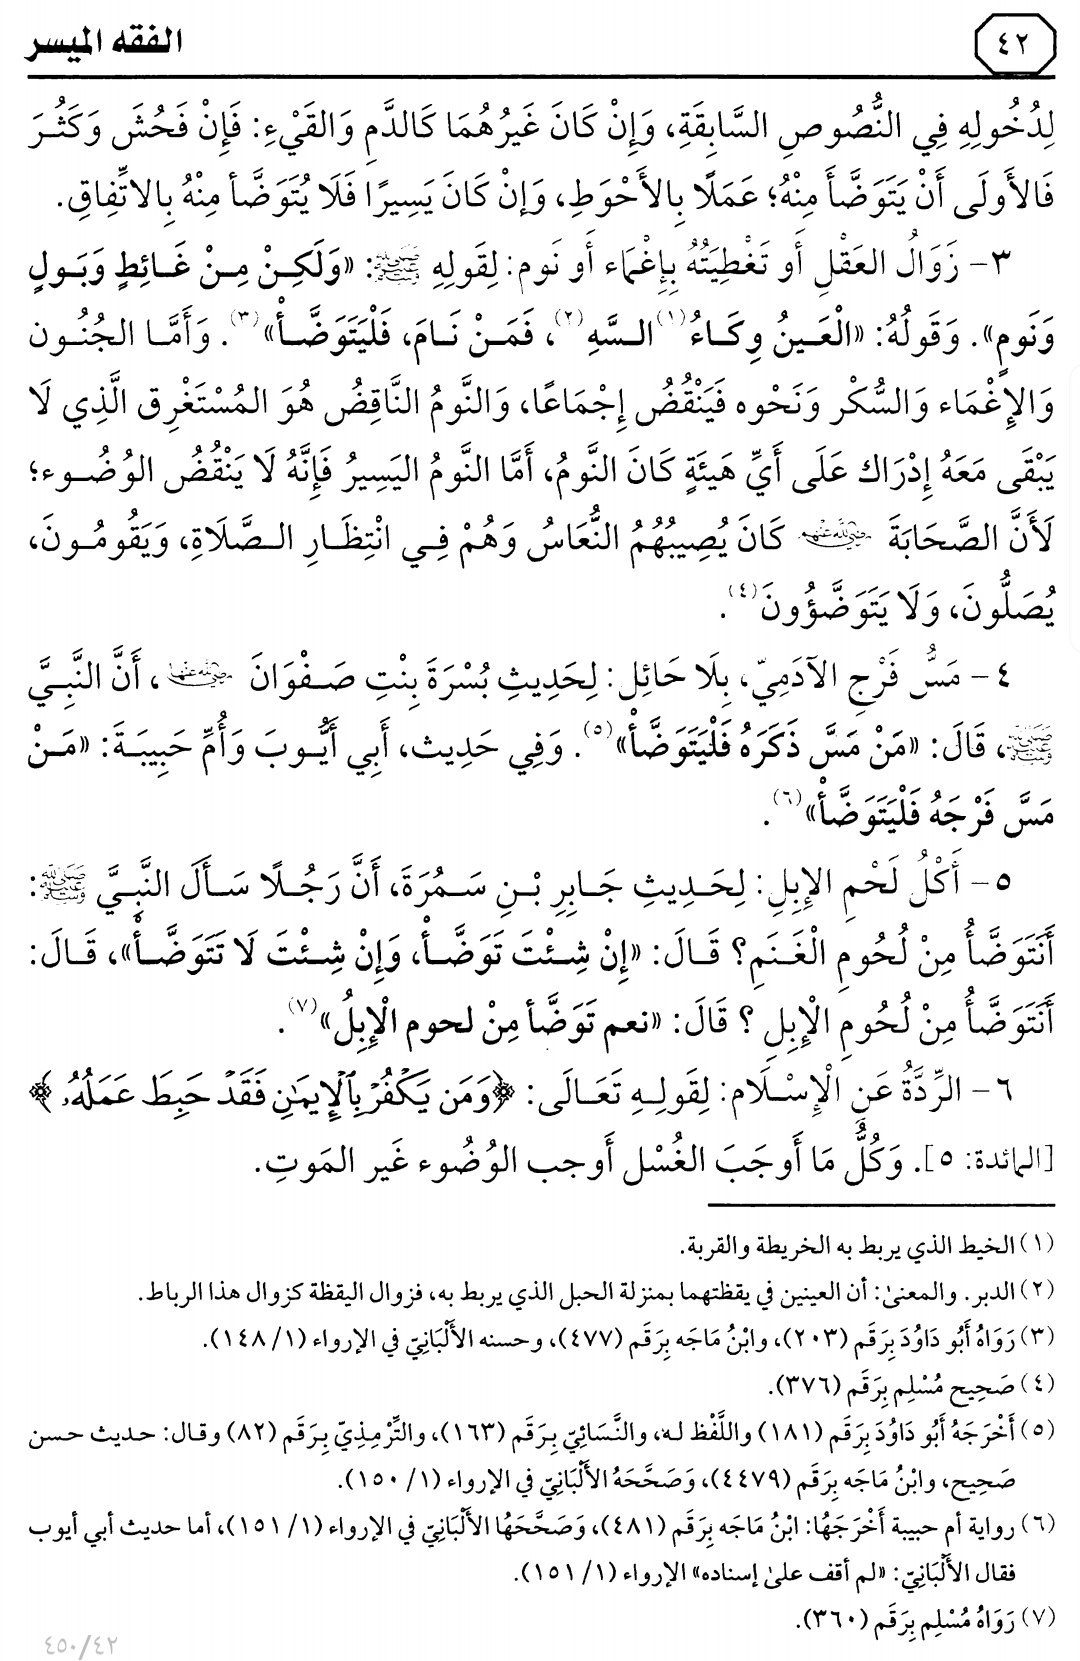 ٤٢
الفقه الميسر
لِدُخُولِهِ فِي النُّصُوصِ السَّابِقَةِ، وَإِنْ كَانَ غَيرُهُمَا كَالدَّمِ وَالقَيْءِ: فَإِنْ فَحُشَ وَكَثُرَ
فَالأَولَى أَنْ يَتَوَضَّأَ مِنْهُ؛ عَمَلًا بِالأَحْوَطِ، وَإنْ كَانَ يَسِيرًا فَلَا يُتَوَضَّأ مِنْهُ بِالاتِّفِاقِ.
٣- زَوَالُ العَقْلِ أَو تَغْطِيَتُهُ بِإِغْمَاء أَو نَوم: لِقَولِهِ ﷺ: «وَلَكِنْ مِنْ غَائِطٍ وَبَولٍ
وَنَومٍ». وَقَولُهُ: «الْعَينُ وِكَاءُ(١) السَّهِ(٢)، فَمَنْ نَامَ، فَلْيَتَوَضَّأْ»(٣). وَأَمَّا الجُنُون
وَالإِغْمَاء وَالسُّكْر وَنَحْوه فَيَنْقُضُ إِجْمَاعًا، وَالنَّومُ النَّاقِضُ هُوَ المُسْتَغْرِق الَّذِي لَا
يَبْقَى مَعَهُ إِدْرَاك عَلَى أَيِّ هَيئَةٍ كَانَ النَّومُ، أَمَّا النَّومُ اليَسِيرُ فَإِنَّهُ لَا يَنْقُضُ الوُضُوء؛
لَأَنَّ الصَّحَابَةَ رضي الله عنهم كَانَ يُصِيبُهُمُ النُّعَاسُ وَهُمْ فِي انْتِظَارِ الصَّلَاةِ، وَيَقُومُونَ،
يُصَلُّونَ، وَلَا يَتَوَضَّؤُونَ(٤).
٤- مَسُّ فَرْجِ الآدَمِيّ، بِلَا حَائِل: لِحَدِيثِ بُسْرَةَ بِنْتِ صَفْوَانَ رضي الله عنها، أَنَّ النَّبِيَّ
ﷺ، قَالَ: «مَنْ مَسَّ ذَكَرَهُ فَلْيَتَوَضَّأْ»(٥). وَفِي حَدِيث، أَبِي أَيُّوبَ وَأُمِّ حَبِيبَةَ: «مَنْ
مَسَّ فَرْجَهُ فَلْيَتَوَضَّأْ»(٦).
٥- أَكْلُ لَحْمِ الإِبِلِ: لِحَدِيثِ جَابِرِ بْنِ سَمُرَةَ، أَنَّ رَجُلًا سَأَلَ النَّبِيَّ ﷺ:
أَنَتَوَضَّأُ مِنْ لُحُومِ الْغَنَمِ؟ قَالَ: «إِنْ شِئْتَ تَوَضَّأْ، وَإِنْ شِئْتَ لَا تَتَوَضَّأْ»، قَالَ:
أَنَتَوَضَّأُ مِنْ لُحُومِ الْإِبِلِ ؟ قَالَ: «نعم تَوَضَّأ مِنْ لحوم الْإِبِلُ»(٧).
٦- الرِّدَّةُ عَنِ الْإِسْلَام: لِقَولِهِ تَعَالَى: ﴿وَمَن يَكْفُرْ بِٱلْإِيمَٰنِ فَقَدْ حَبِطَ عَمَلُهُۥ﴾
[المائدة: ٥]. وَكُلُّ مَا أَوجَبَ الغُسْل أَوجب الوُضُوء غَير المَوتِ.
(١) الخيط الذي يربط به الخريطة والقربة.
(٢) الدبر. والمعنىٰ: أن العينين في يقظتهما بمنزلة الحبل الذي يربط به، فزوال اليقظة كزوال هذا الرباط.
(٣) رَوَاهُ أَبُو دَاوُدَ بِرَقَم (٢٠٣)، وابْنُ مَاجَه بِرَقَم (٤٧٧)، وحسنه الأَلْبَانِيّ في الإرواء (١/ ١٤٨).
(٤) صَحِيح مُسْلِم بِرَقَم (٣٧٦).
(٥) أَخْرَجَهُ أَبُو دَاوُدَ بِرَقَم (١٨١) واللَّفْظ له، والنَّسَائِيّ بِرَقَم (١٦٣)، والتِّرْمِذِيّ بِرَقَم (٨٢) وقال: حديث حسن
صَحِيح، وابْنُ مَاجَه بِرَقَم (٤٤٧٩)، وَصَحَّحَهُ الأَلْبَانِيّ في الإرواء (١/ ١٥٠).
(٦) رواية أم حبيبة أَخْرَجَهُا: ابْنُ مَاجَه بِرَقَم (٤٨١)، وَصَحَّحَهُا الأَلْبَانِيّ في الإرواء (١/ ١٥١)، أما حديث أبي أيوب
فقال الأَلْبَانِيّ: «لم أقف علىٰ إسناده» الإرواء (١/ ١٥١).
(٧) رَوَاهُ مُسْلِم بِرَقَم (٣٦٠).
٤٥٠/٤٢